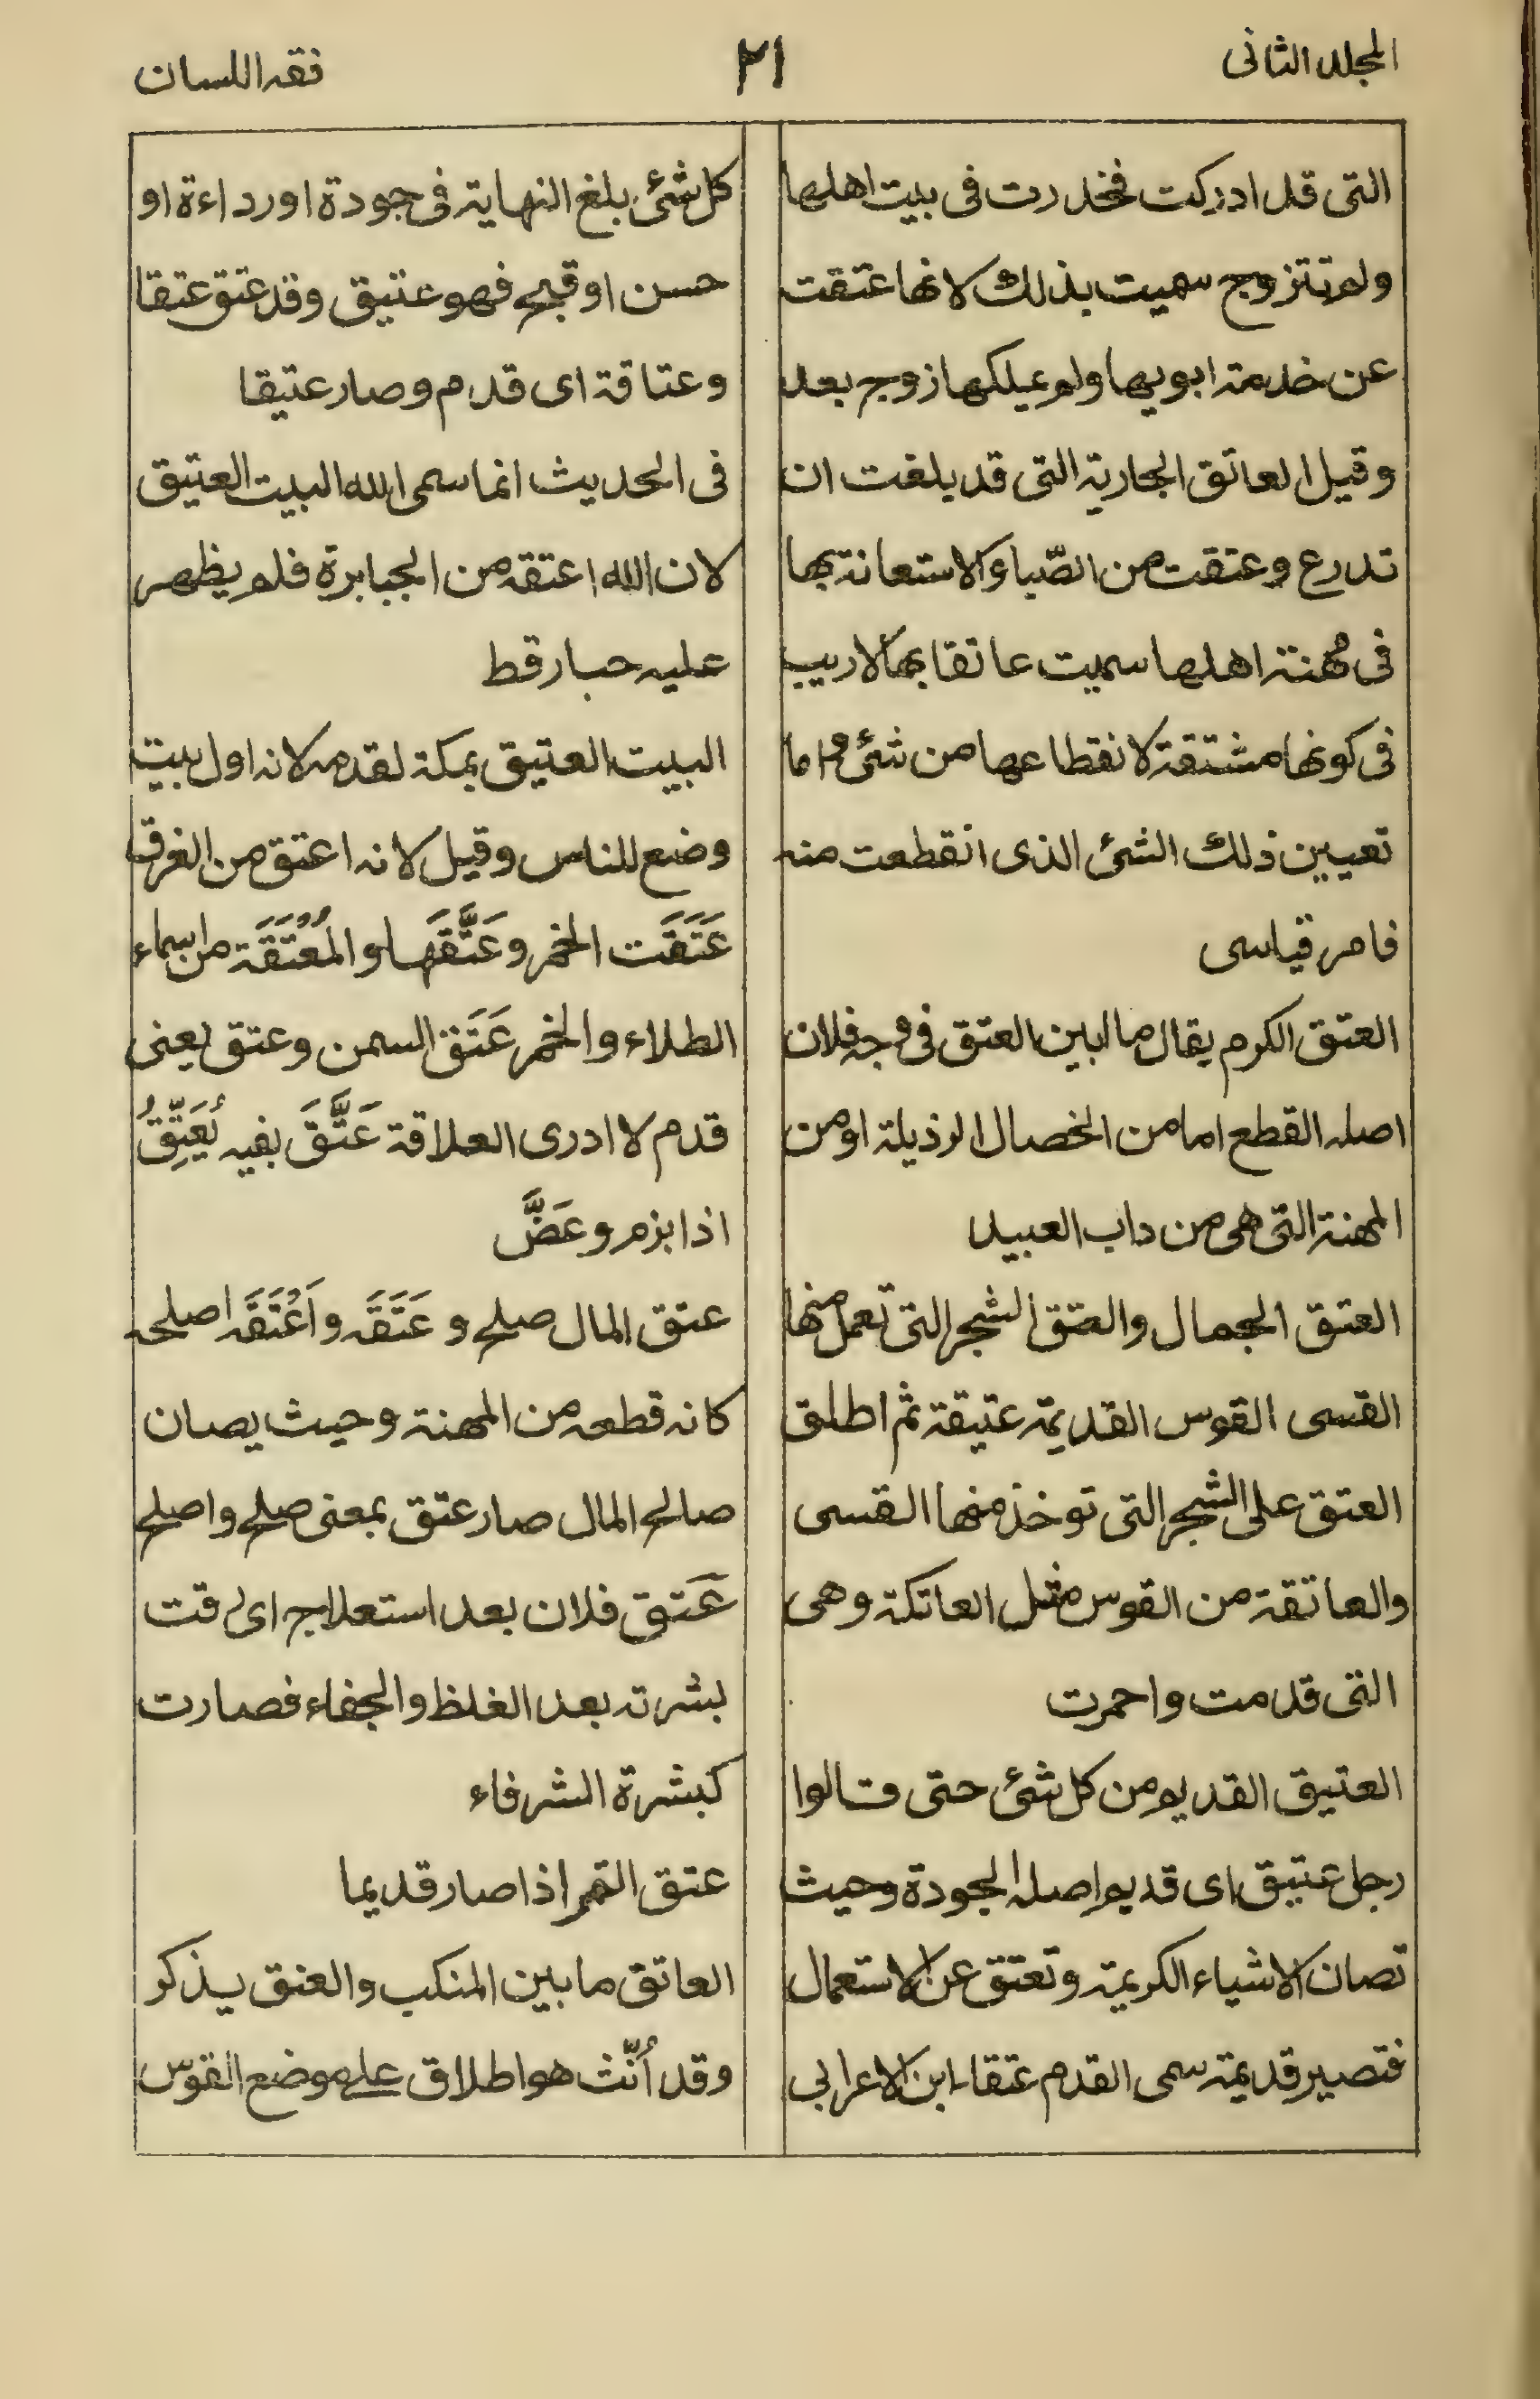 المجلد الثانى
٢١
فقه اللسان
التى قد ادركت فخدرت فى بيت اهلها
ولم تتزوج سميت بذلك لانها عتقت
عن خدمة ابويها ولم يملكها زوج بعد
وقيل العاتق الجارية التى قد بلغت ان
تدرع وعتقت من الصّبا والاستعانة بها
فى مهنة اهلها سميت عاتقا بها لاريب
فى كونها مشتقة لانقطاعها من شئ واما
تعيين ذلك الشئ الذى انقطعت منه
فامر قياسى
العتق الكرم يقال ما ابين العتق فى وجه فلان
اصله القطع اما من الخصال الرذيلة او من
المهنة التى هى من داب العبيد
العتق الجمال والعتق الشجر التى تعمل منها
القسى القوس القديمة عتيقة ثم اطلق
العتق على الشجر التى توخذ منها القسى
والعاتقة من القوس مثل العاتكة وهى
التى قدمت واحمرت
العتيق القديم من كل شئ حتى قالوا
رجل عتيق اى قديم اصله الجودة وحيث
تصان الاشياء الكريمة وتعتق عن الاستعمال
فتصير قديمة سمى القدم عتقا ابن الاعرابى
كل شئ بلغ النهاية فى جودة او رداءة او
حسن او قبح فهو عتيق وقد عتق عتقا
وعتاقة اى قدم وصار عتيقا
فى الحديث انما سمى الله البيت العتيق
لان الله اعتقه من الجبابرة فلم يظهر
عليه جبار قط
البيت العتيق بمكة لقدمه لانه اول بيت
وضع للناس وقيل لانه اعتق من الغرق
عَتَقَت الخمر وعَتَّقَها والمُعْتَقَة من اسماء
الطلاء والخمر عَتَق السمن وعتق يعنى
قدم لا ادرى العلاقة عَتَّقَ بفيه يُعَتِّقُ
اذا بزم وعَضَّ
عتق المال صلح وعَتَقَه واَعْتَقَه اصلحه
كانه قطعه من المهنة وحيث يصان
صالح المال صار عتق بمعنى صلح واصلح
عَتق فلان بعد استعلاج اى رقت
بشرته بعد الغلظ والجفاء فصارت
كبشرة الشرفاء
عتق التمر اذا صار قديما
العاتق ما بين المنكب والعنق يذكر
وقد اُنّث هو اطلاق على موضع القوس